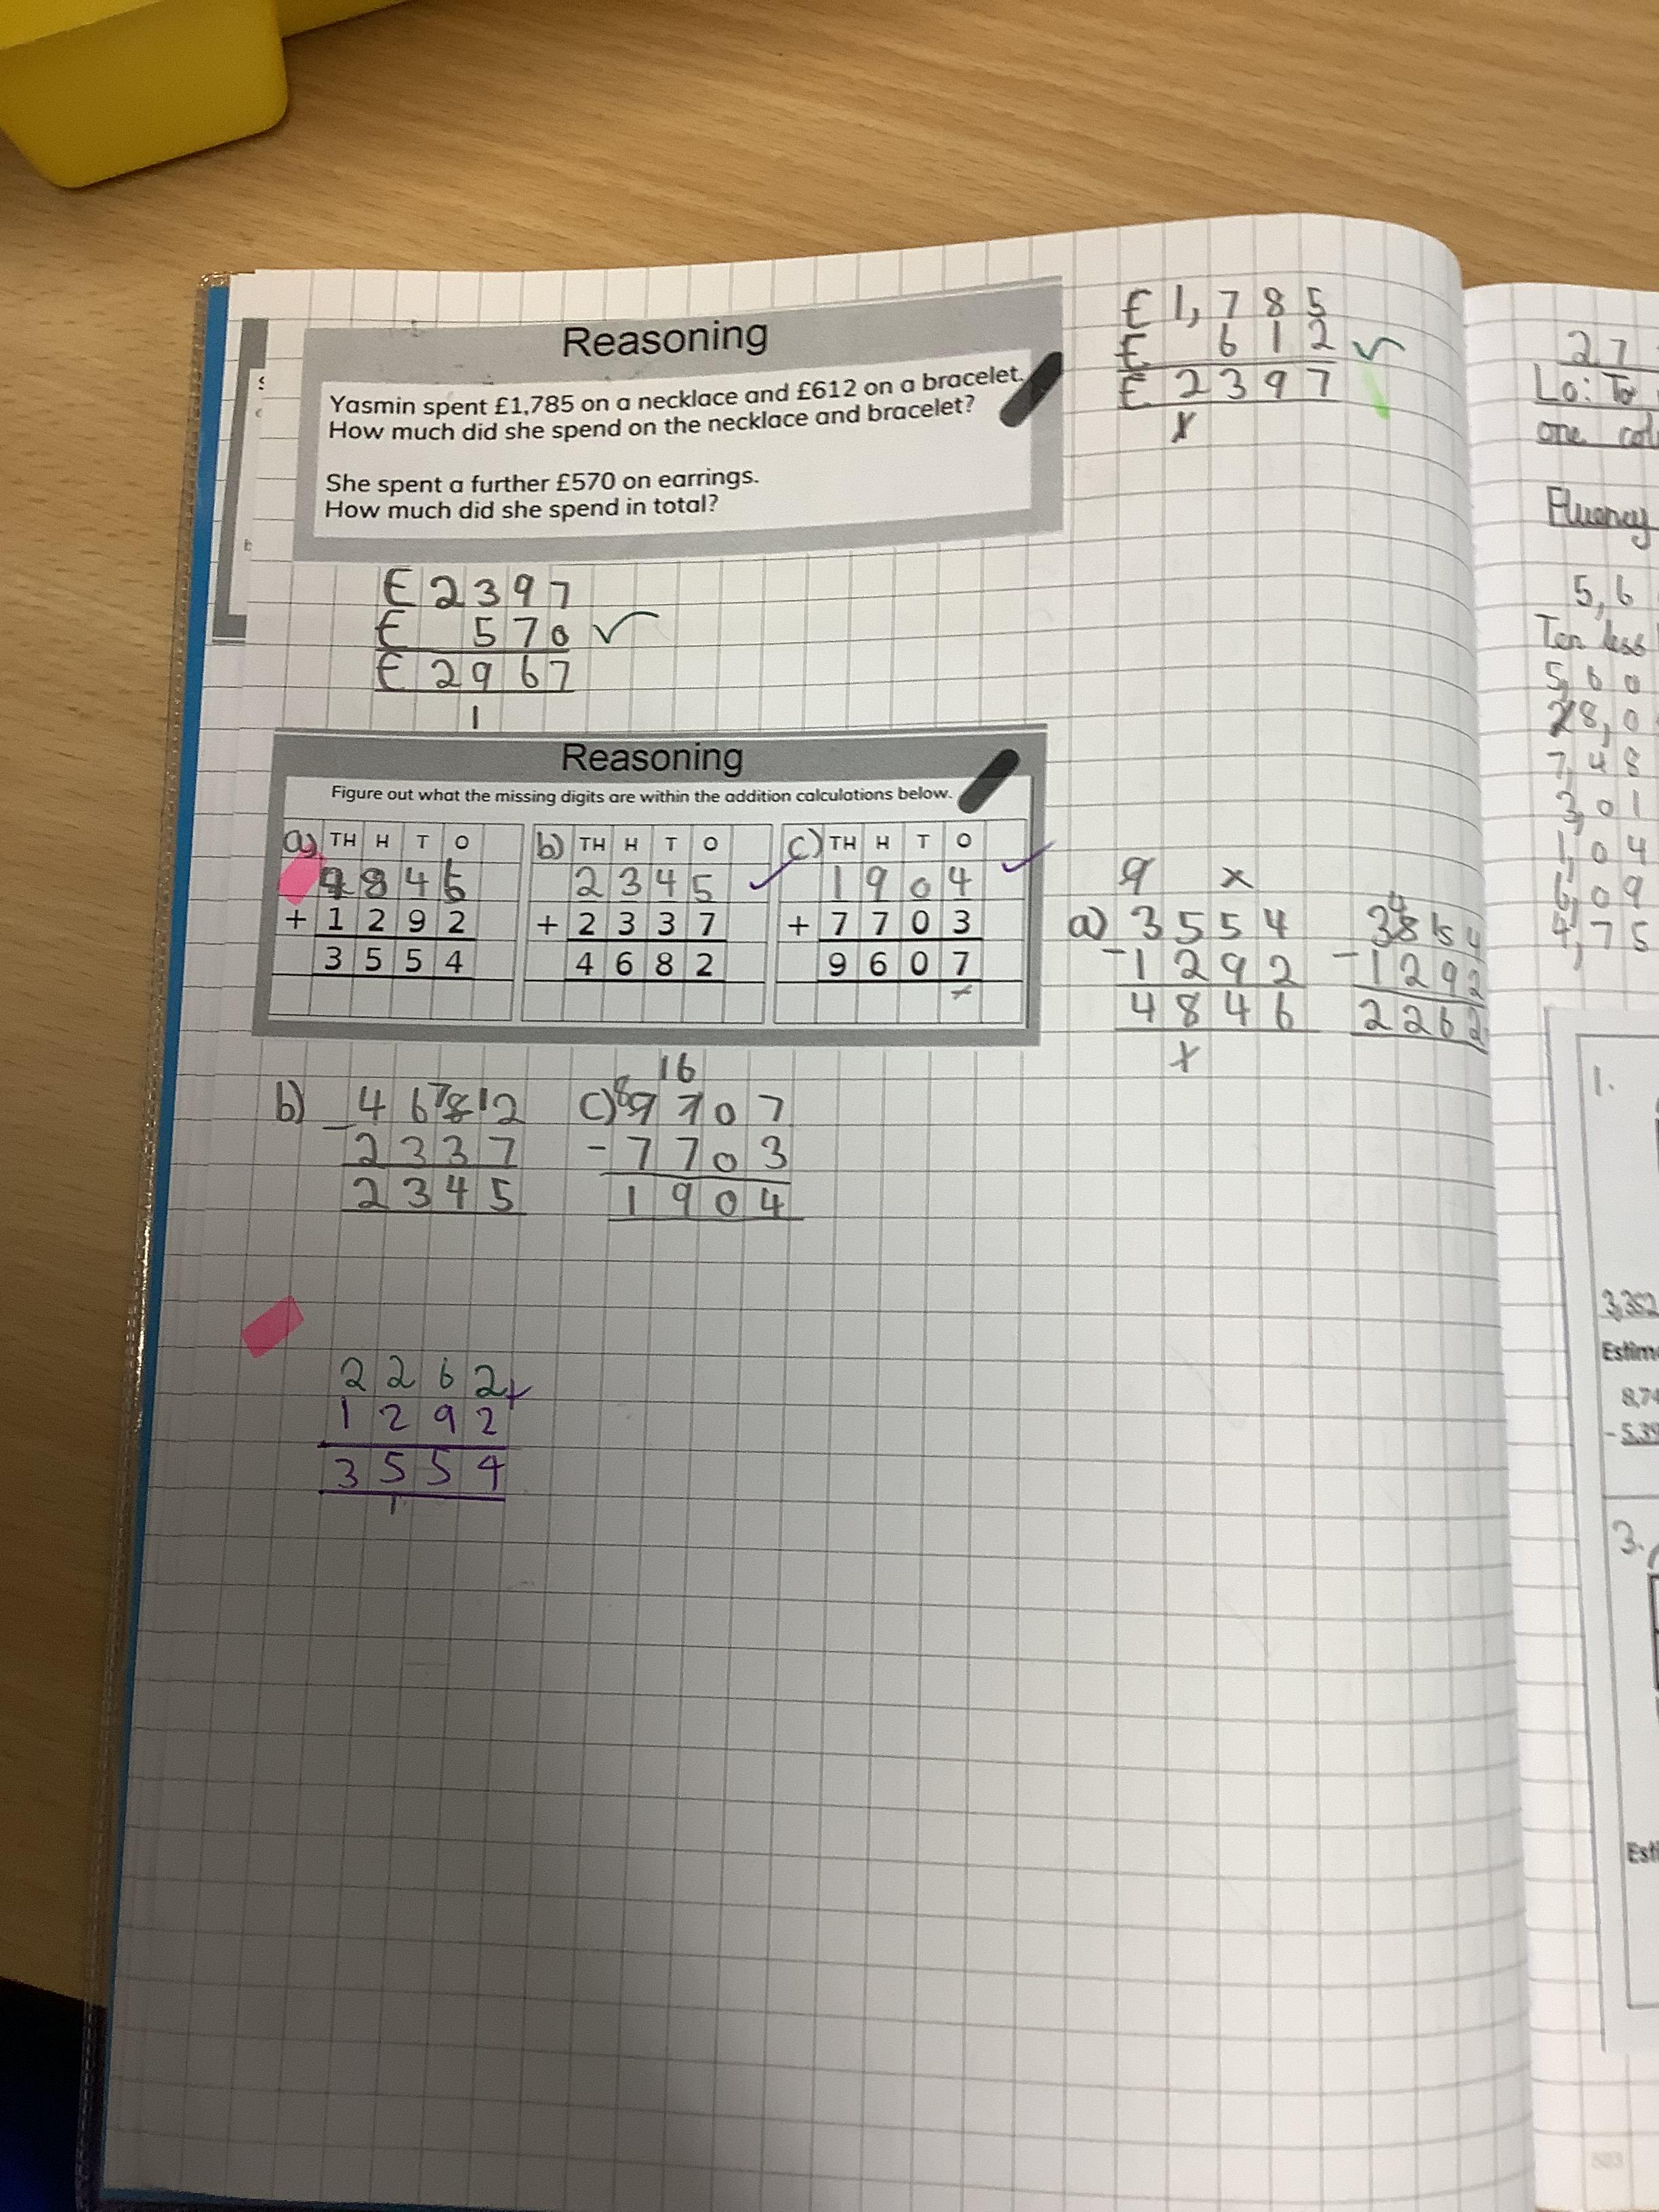 Reasoning
Yasmin spent £1,785 on a necklace and £612 on a bracelet.
How much did she spend on the necklace and bracelet?
She spent a further £570 on earrings.
How much did she spend in total?
£ 1,785
£ 612 ✓
£ 2397
1
£ 2397
£ 570 ✓
£ 2967
1
Reasoning
Figure out what the missing digits are within the addition calculations below.
a) TH H T O
4846
+ 1292
3554
b) TH H T O
2345 ✓
+ 2337
4682
c) TH H T O
1904 ✓
+ 7703
9607
9 x
a) 3554
- 1292
4846
4
- 1292
2262
b) 4 6 7 8 12
- 2337
2345
16
c) 8 9 7 0 7
- 7703
1904
2262 +
1292
3554
1
27
Lo: To
one col
Fluency
5,6
Ten less
5,60
28,0
7,48
3,01
1,04
6,09
4,75
1.
3,352
Estim
8,74
- 5,39
3.
Esti